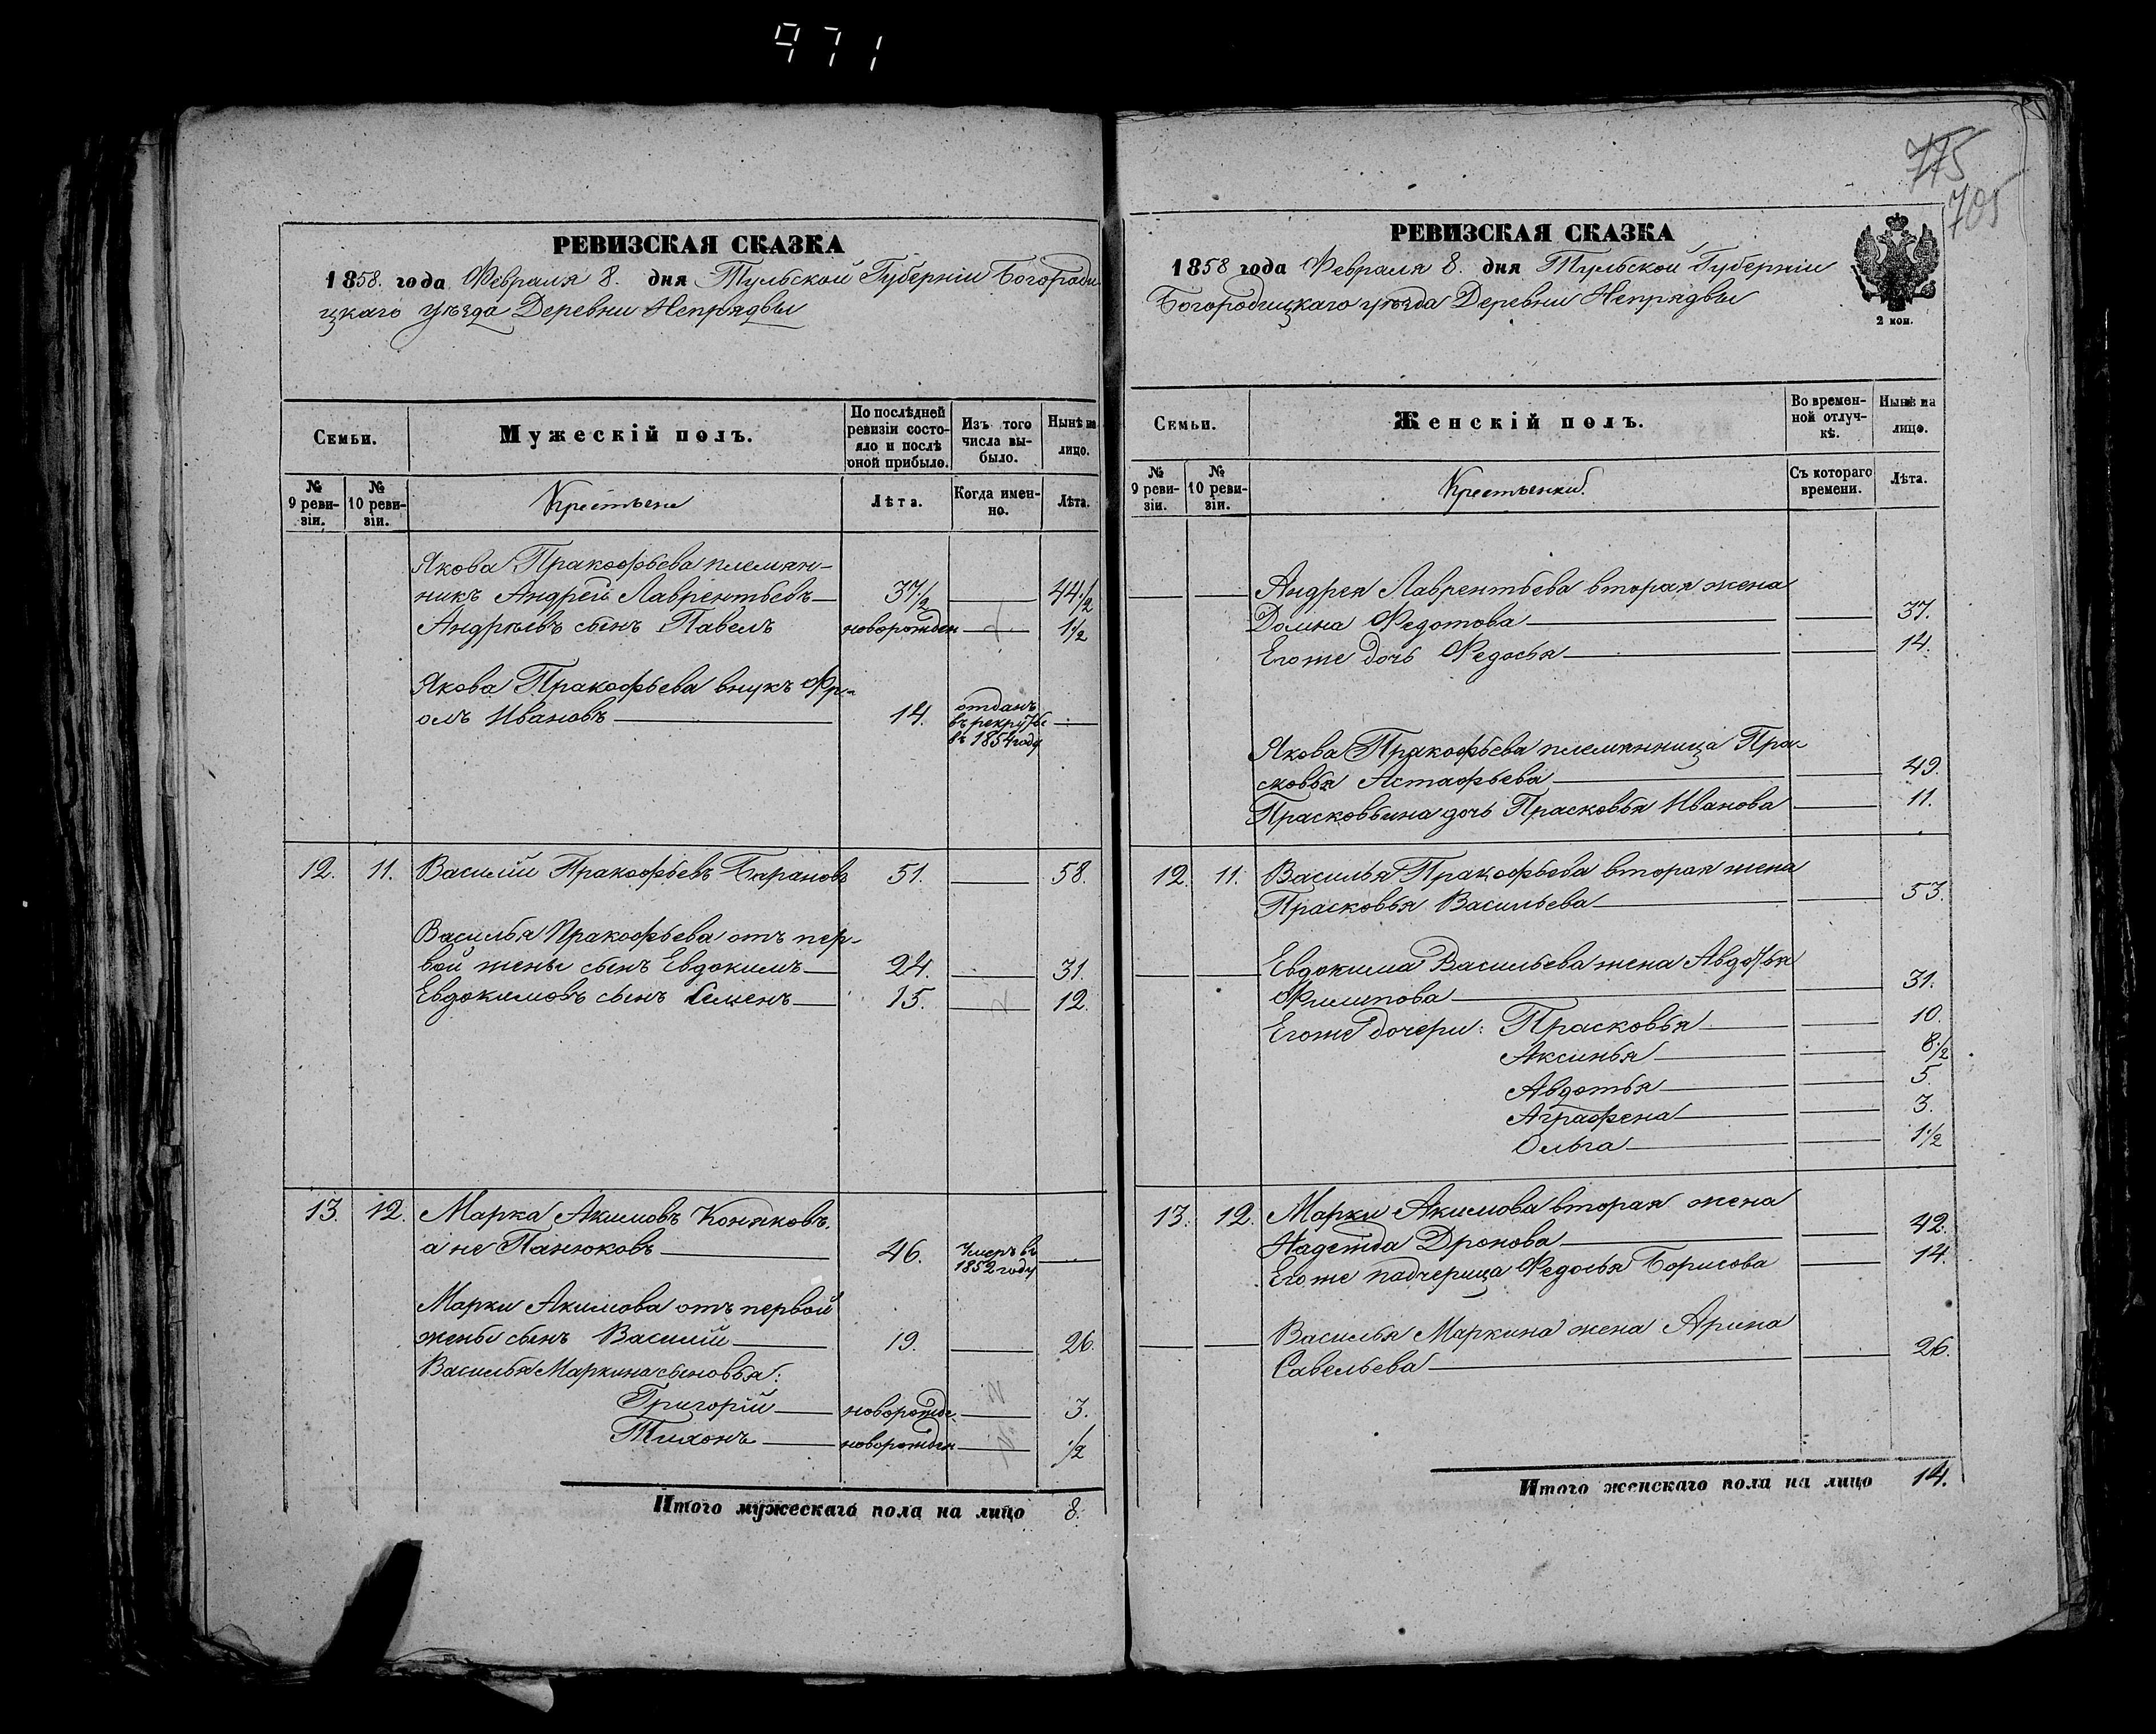 971
775
705
РЕВИЗСКАЯ СКАЗКА
1858. года Февраля 8. дня Тульской Губерніи Богороди
цкаго уѣзда Деревни Непрядвы
Семьи.
Мужескій полъ.
По послѣдней ревизіи состояло и послѣ оной прибыло.
Изъ того числа выбыло.
Нынѣ на лицо.
№ 9 ревизіи.
№ 10 ревизіи.
Крестьяне
Лѣта.
Когда именно.
Лѣта.
Якова Пракофьева племян-
никъ Андрей Лаврентьевъ 37½ 44½
Андреевъ сынъ Павелъ новорожден 1½
Якова Пракофьева внукъ Фр-
олъ Ивановъ 14. отданъ въ рекруты въ 1854 году
12. 11. Василій Пракофьевъ Барановъ 51. 58.
Василья Пракофьева отъ пер-
вой жены сынъ Евдокимъ 24. 31.
Евдокимовъ сынъ Семенъ 15. 12.
13. 12. Марка Акимовъ Коняковъ,
а не Панюковъ 46. умеръ въ 1852 году
Марки Акимова отъ первой
жены сынъ Василій 19. 26.
Василья Маркина сыновья:
Григорій новорожде. 3.
Тихонъ новорожден ½
Итого мужескаго пола на лицо 8.
РЕВИЗСКАЯ СКАЗКА
1858 года Февраля 8. дня Тульской Губерніи
Богородицкаго уѣзда Деревни Непрядвы
2 коп.
Семьи.
Женскій полъ.
Во временной отлучкѣ.
Нынѣ на лицо.
№ 9 ревизіи.
№ 10 ревизіи.
Крестьянки.
Съ котораго времени.
Лѣта.
Андрея Лаврентьева вторая жена
Домна Федотова 37.
Его же дочь Федосья 14.
Якова Пракофьева племянница Пра-
сковья Астафьева 49.
Прасковьина дочь Прасковья Иванова 11.
12. 11. Василья Пракофьева вторая жена
Прасковья Васильева 53.
Евдокима Васильева жена Авдотья
Филипова 31.
Его же дочери: Прасковья 10.
Аксинья 8½
Авдотья 5.
Аграфена 3.
Ольга 1½
13. 12. Марки Акимова вторая жена
Надежда Дронова 42.
Его же падчерица Федосья Борисова 14.
Василья Маркина жена Арина
Савельева 26.
Итого женскаго пола на лицо 14.